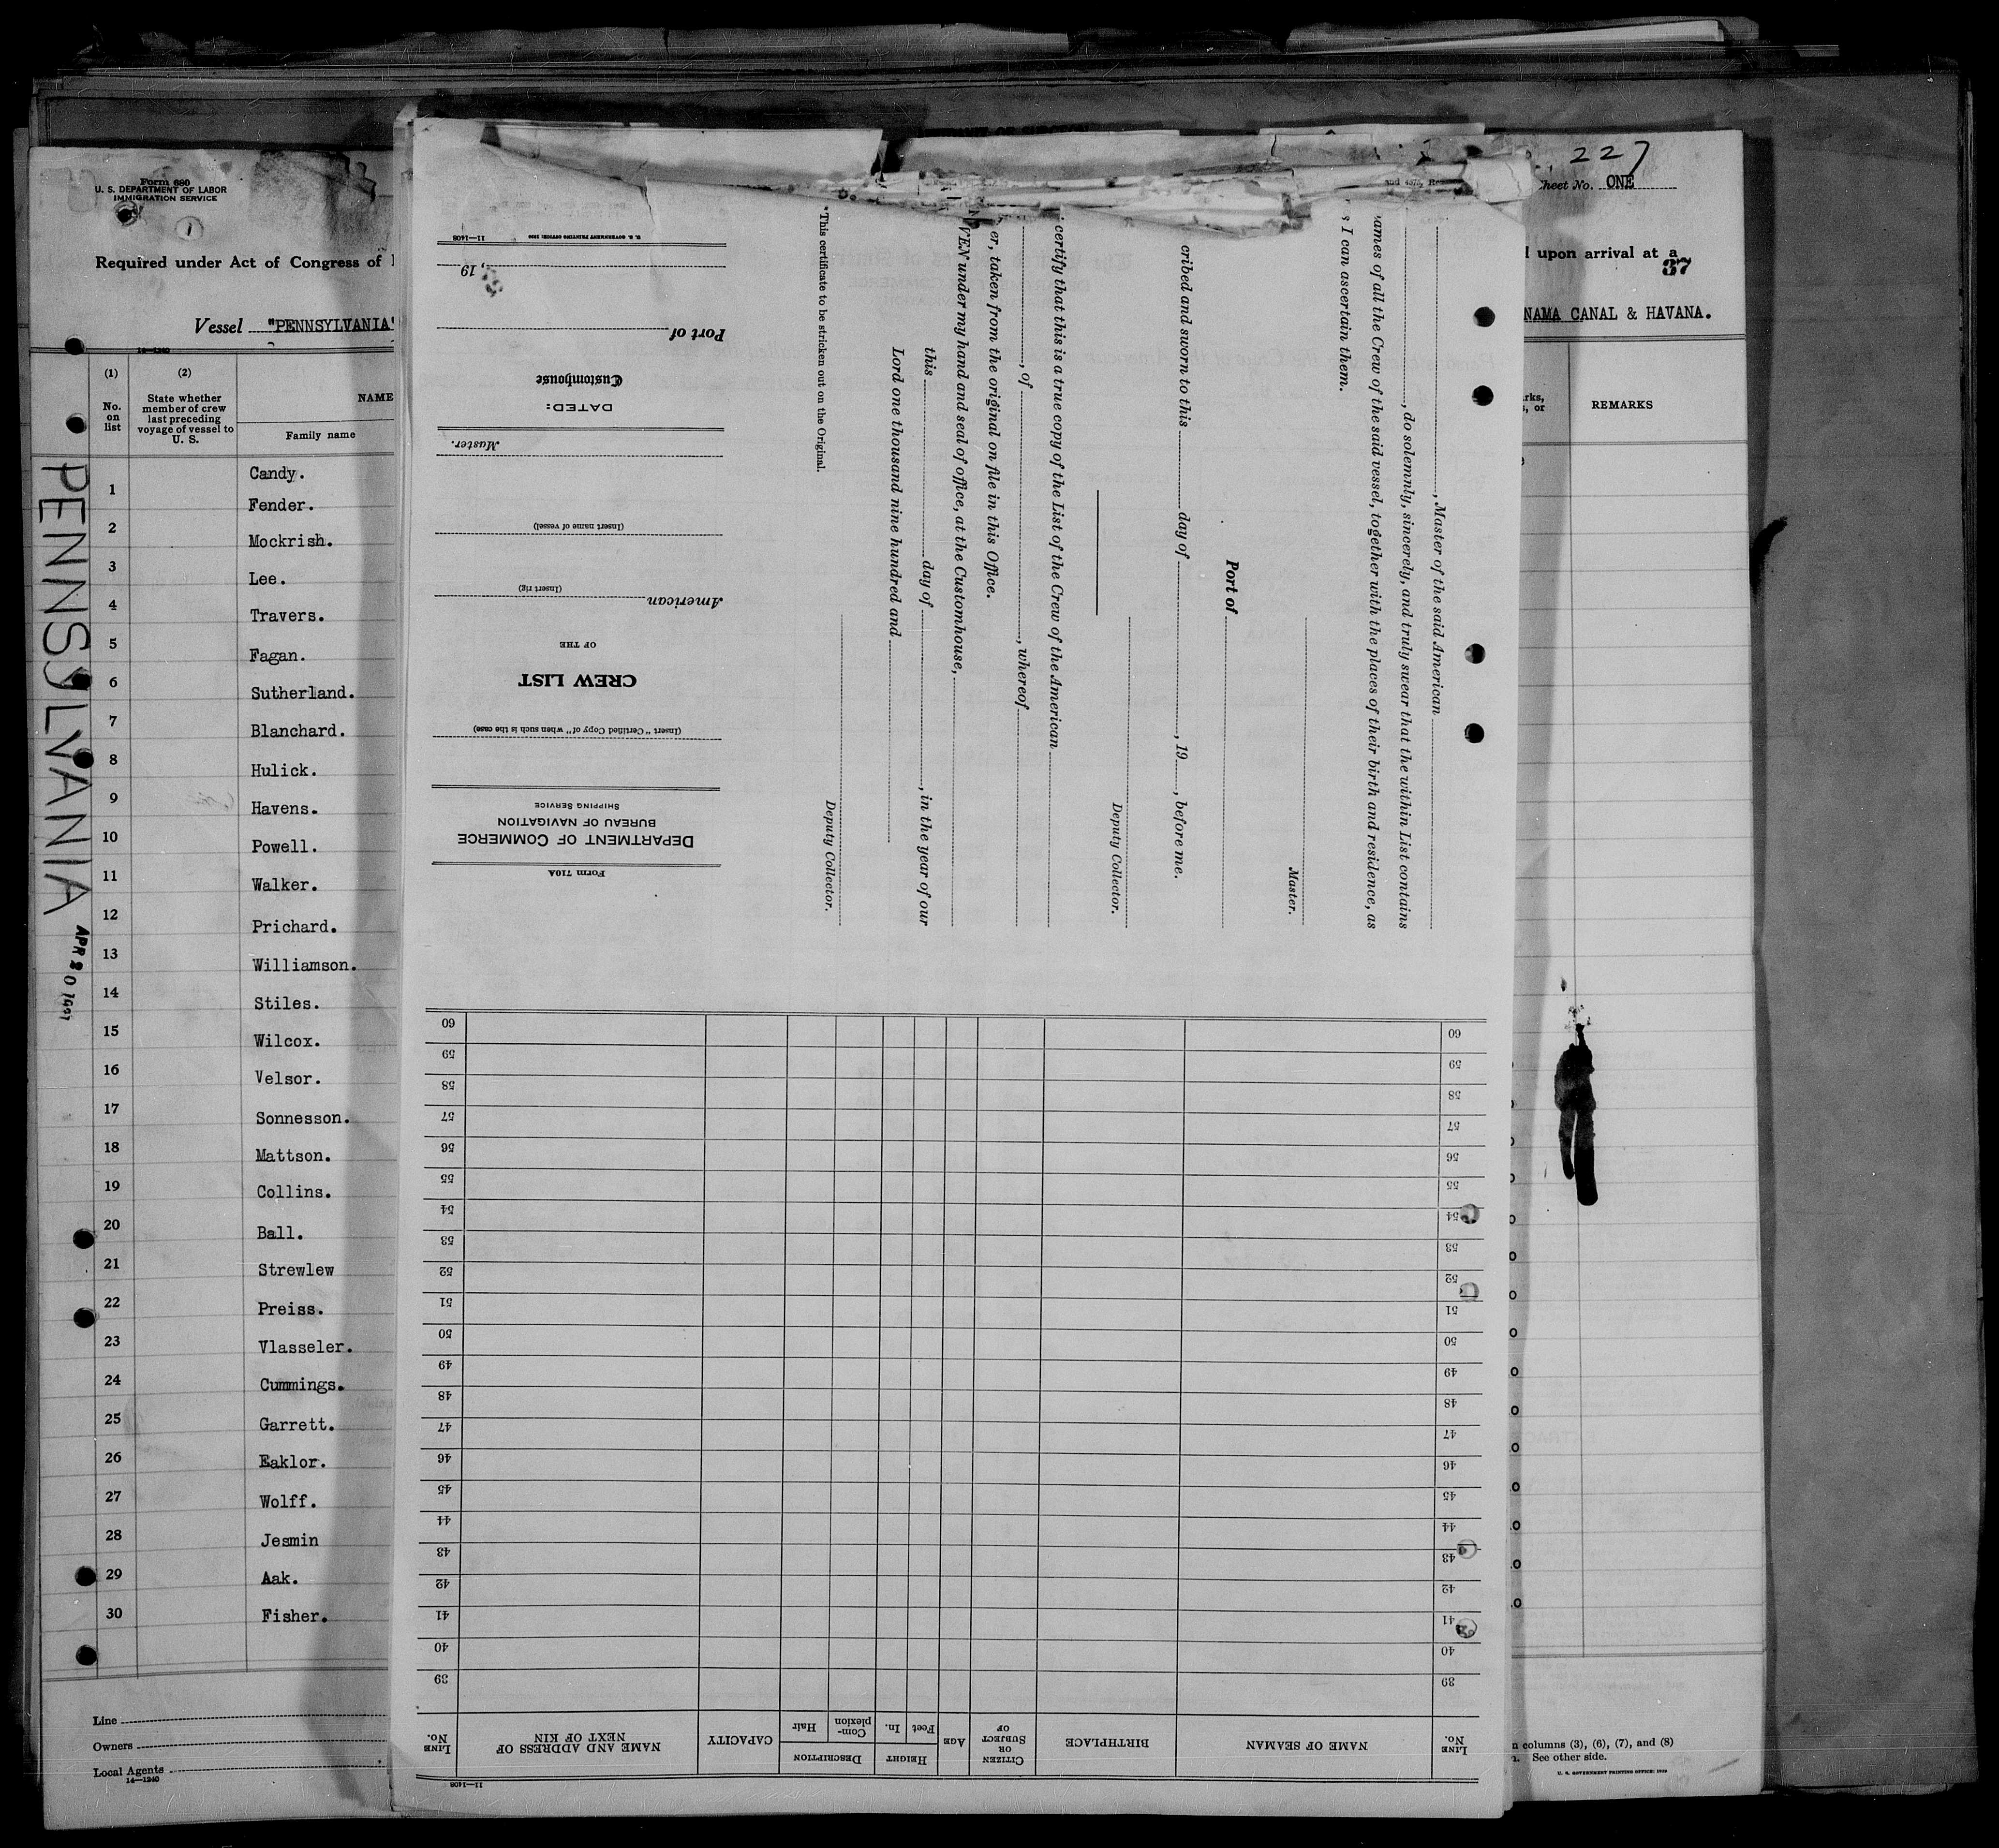 227
Form 680
U. S. DEPARTMENT OF LABOR
IMMIGRATION SERVICE
Sheet No. ONE
1
Required under Act of Congress of
upon arrival at a
37
Vessel "PENNSYLVANIA"
NAMA CANAL & HAVANA.
14—1240
(1)
(2)
No.
on
list
State whether
member of crew
last preceding
voyage of vessel to
U. S.
NAME
Family name
REMARKS
PENNSYLVANIA
APR 20
Candy.
1
Fender.
2
Mockrish.
3
Lee.
4
Travers.
5
Fagan.
6
Sutherland.
7
Blanchard.
8
Hulick.
9
Havens.
10
Powell.
11
Walker.
12
Prichard.
13
Williamson.
14
Stiles.
15
Wilcox.
16
Velsor.
17
Sonnesson.
18
Mattson.
19
Collins.
20
Ball.
21
Strewlew
22
Preiss.
23
Vlasseler.
24
Cummings.
25
Garrett.
26
Eaklor.
27
Wolff.
28
Jesmin
29
Aak.
30
Fisher.
Line
Owners
Local Agents
14—1240
columns (3), (6), (7), and (8)
See other side.
U. S. GOVERNMENT PRINTING OFFICE: 1929
, Master of the said American
, do solemnly, sincerely, and truly swear that the within List contains
ames of all the Crew of the said vessel, together with the places of their birth and residence, as
s I can ascertain them.
Master.
Port of
cribed and sworn to this day of , 19 , before me.
Deputy Collector.
certify that this is a true copy of the List of the Crew of the American
, of , whereof
er, taken from the original on file in this Office.
VEN under my hand and seal of office, at the Customhouse,
this day of , in the year of our
Lord one thousand nine hundred and
Deputy Collector.
*This certificate to be stricken out on the Original.
Form 710A
DEPARTMENT OF COMMERCE
BUREAU OF NAVIGATION
SHIPPING SERVICE
(Insert "Certified Copy of" when such is the case)
CREW LIST
OF THE
American
(Insert rig)
(Insert name of vessel)
Master.
DATED:
Customhouse
Port of
, 19
11—1408
U. S. GOVERNMENT PRINTING OFFICE: 1930
11—1408
LINE No.
NAME OF SEAMAN
BIRTHPLACE
CITIZEN OR SUBJECT OF
AGE
HEIGHT
Feet
In.
DESCRIPTION
Com-plexion
Hair
CAPACITY
NAME AND ADDRESS OF NEXT OF KIN
LINE No.
39 39
40 40
41 41
42 42
43 43
44 44
45 45
46 46
47 47
48 48
49 49
50 50
51 51
52 52
53 53
54 54
55 55
56 56
57 57
58 58
59 59
60 60